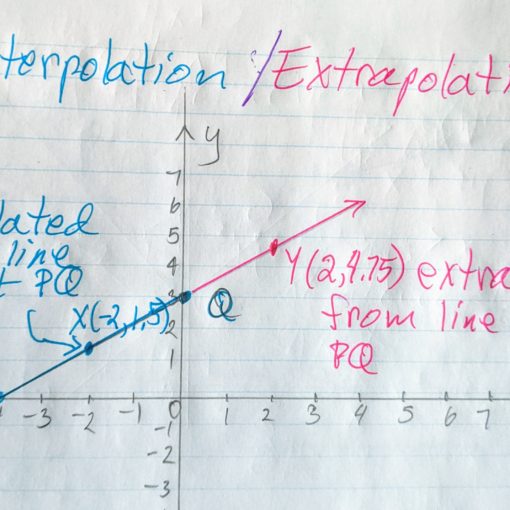 terpolation / Extrapolati
y
7
6
5
4
3
2
1
lated
line
PQ
X(-2,1,5)
Q
Y(2,4.75) extra
from line
PQ
-3 -2 -1 0 1 2 3 4 5 6 7
-1
-2
-3